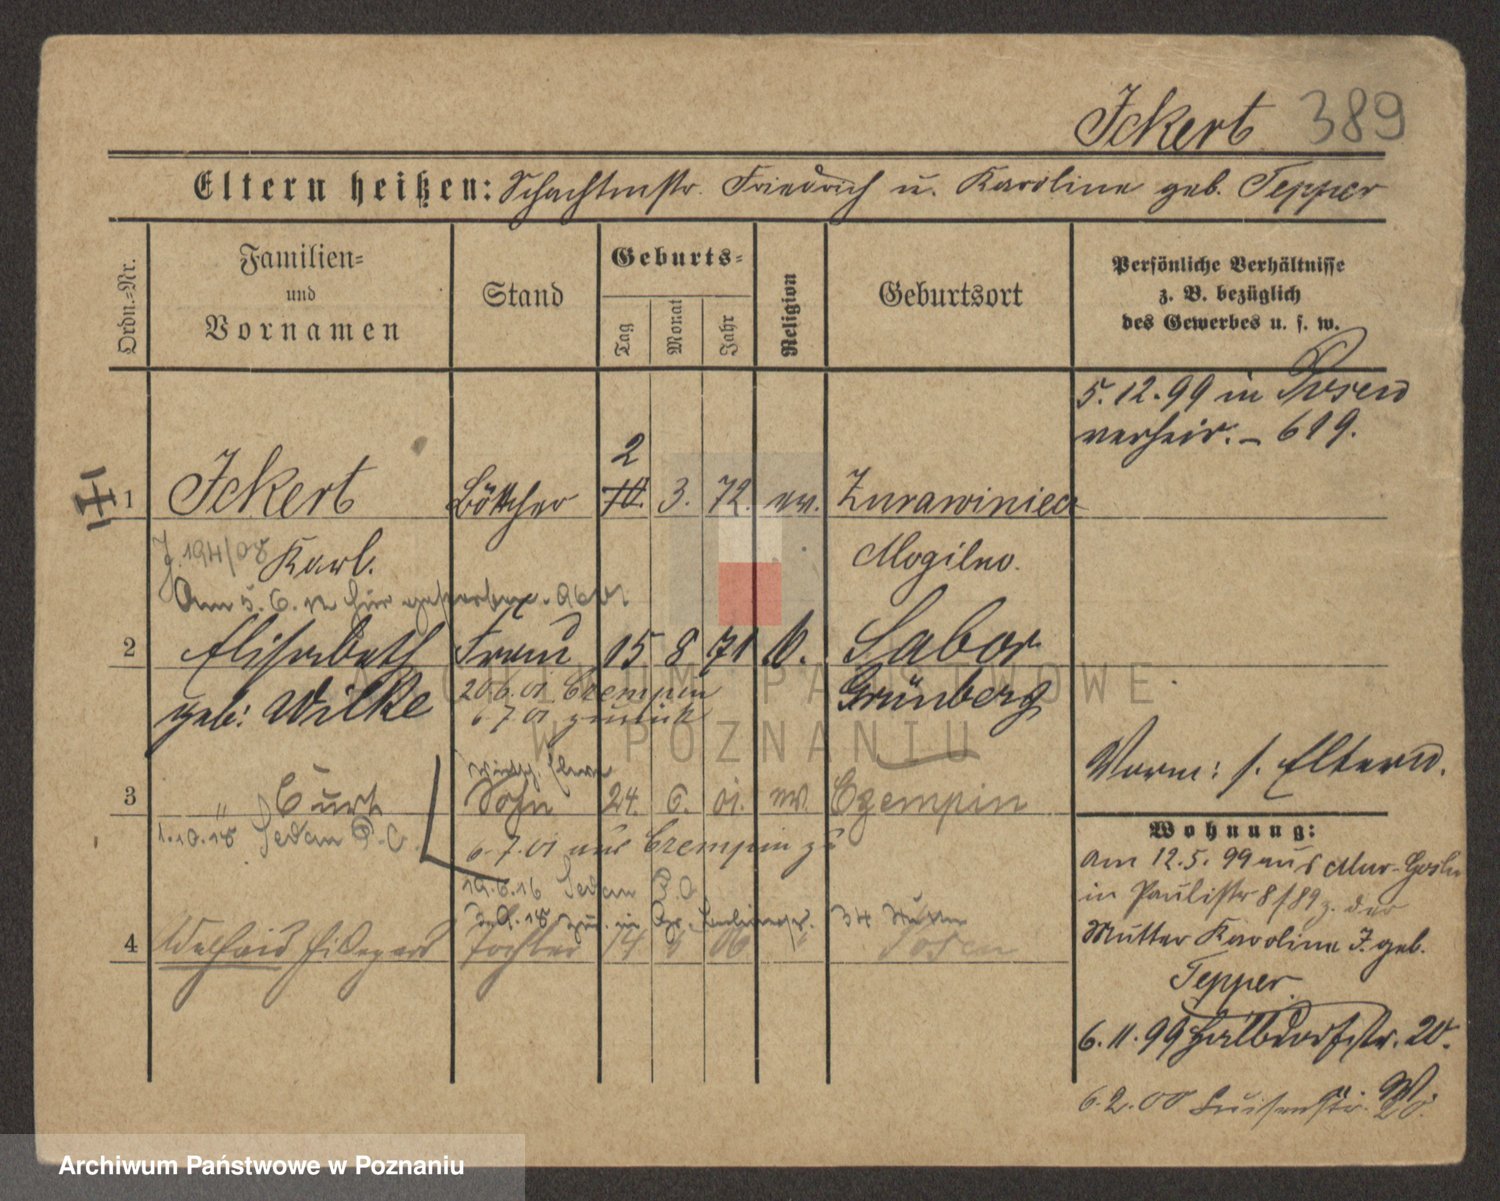 Ickert 389
Eltern heißen: Schachtmstr. Friedrich u. Karoline geb. Tepper
Ordn.=Nr.
Familien=
und
Vornamen
Stand
Geburts=
Tag
Monat
Jahr
Religion
Geburtsort
Persönliche Verhältnisse
z. B. bezüglich
des Gewerbes u. s. w.
5. 12. 99 in Posen
verheir. – 619.
2
1 Ickert Böttcher 10. 3. 72. ev.
J. 194/08 Karl. Mogilno.
Am 5. 6. für
2 Elisabeth Frau 15 8 71 Sabor
geb: Wilke Grünberg
20.6.01 Czempin
6.7.01 zurück
Vorm: s. Eltern.
3 " Curt Sohn 24. 6. 01. ev. Czempin
1.10.18 Sedan
6.7.01 aus Czempin zu
19.6.16 Sedan
4 Tochter 14 06 " Posen
Wohnung:
Am 12. 5. 99 aus Mur-Goslin
in Paulistr 8/89 z. der
Mutter Karoline I. geb.
Tepper
6. 11. 99 Halbdorfstr. 20.
6. 2. 00 Luisenstr.
ARCHIWUM PAŃSTWOWE
W POZNANIU
Archiwum Państwowe w Poznaniu